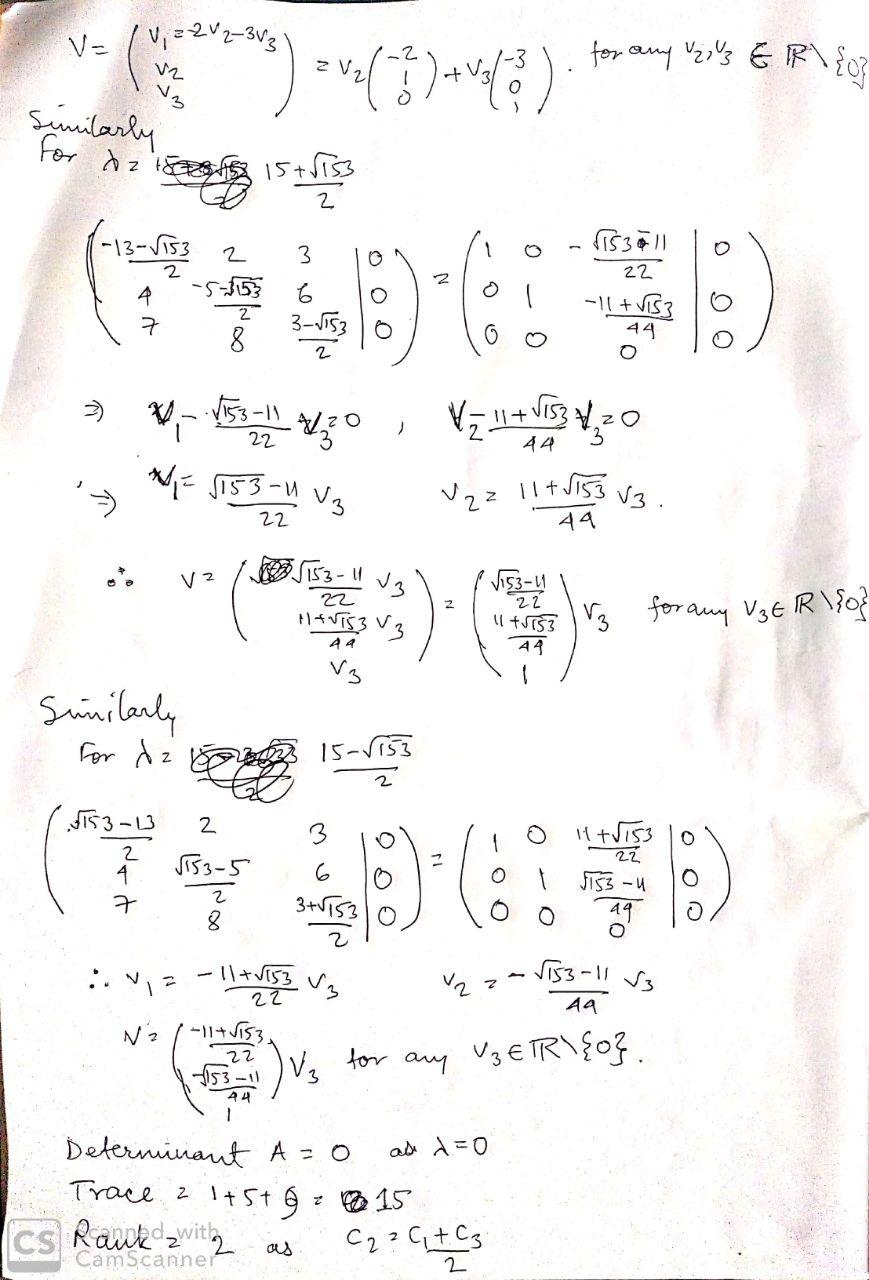 V = ( V₁ = -2V₂-3V₃ ; V₂ ; V₃ ) = V₂ ( -2 ; 1 ; 0 ) + V₃ ( -3 ; 0 ; 1 ) . for any V₂,V₃ ∈ ℝ\{0}
Similarly
For λ = (15+√153)/2
( (-13-√153)/2 2 3 | 0 ; 4 (-5-√153)/2 6 | 0 ; 7 8 (3-√153)/2 | 0 ) = ( 1 0 -(√153-11)/22 | 0 ; 0 1 (-11+√153)/44 | 0 ; 0 0 0 | 0 )
⇒ V₁ - (√153-11)/22 V₃ = 0 , V₂ - (11+√153)/44 V₃ = 0
⇒ V₁ = (√153-11)/22 V₃ V₂ = (11+√153)/44 V₃ .
∴ V = ( (√153-11)/22 V₃ ; (11+√153)/44 V₃ ; V₃ ) = ( (√153-11)/22 ; (11+√153)/44 ; 1 ) V₃ for any V₃ ∈ ℝ\{0}
Similarly
For λ = (15-√153)/2
( (√153-13)/2 2 3 | 0 ; 4 (√153-5)/2 6 | 0 ; 7 8 (3+√153)/2 | 0 ) = ( 1 0 (11+√153)/22 | 0 ; 0 1 (√153-11)/44 | 0 ; 0 0 0 | 0 )
∴ V₁ = (-11+√153)/22 V₃ V₂ = -(√153-11)/44 V₃
V = ( (-11+√153)/22 ; -(√153-11)/44 ; 1 ) V₃ for any V₃ ∈ ℝ\{0}.
Determinant A = 0 as λ=0
Trace = 1+5+9 = 15
Rank = 2 as C₂ = (C₁+C₃)/2
CS Scanned with
CamScanner